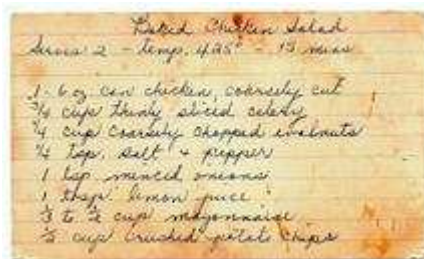 Baked Chicken Salad
Serves 2 - temp. 425° - 15 mins
1 - 6 oz can chicken, coarsely cut
3/4 cup thinly sliced celery
1/4 cup coarsely chopped walnuts
1/4 tsp. salt & pepper
1 tsp minced onions
1 tbsp lemon juice
1/3 to 1/2 cup mayonnaise
1/2 cup crushed potato chips